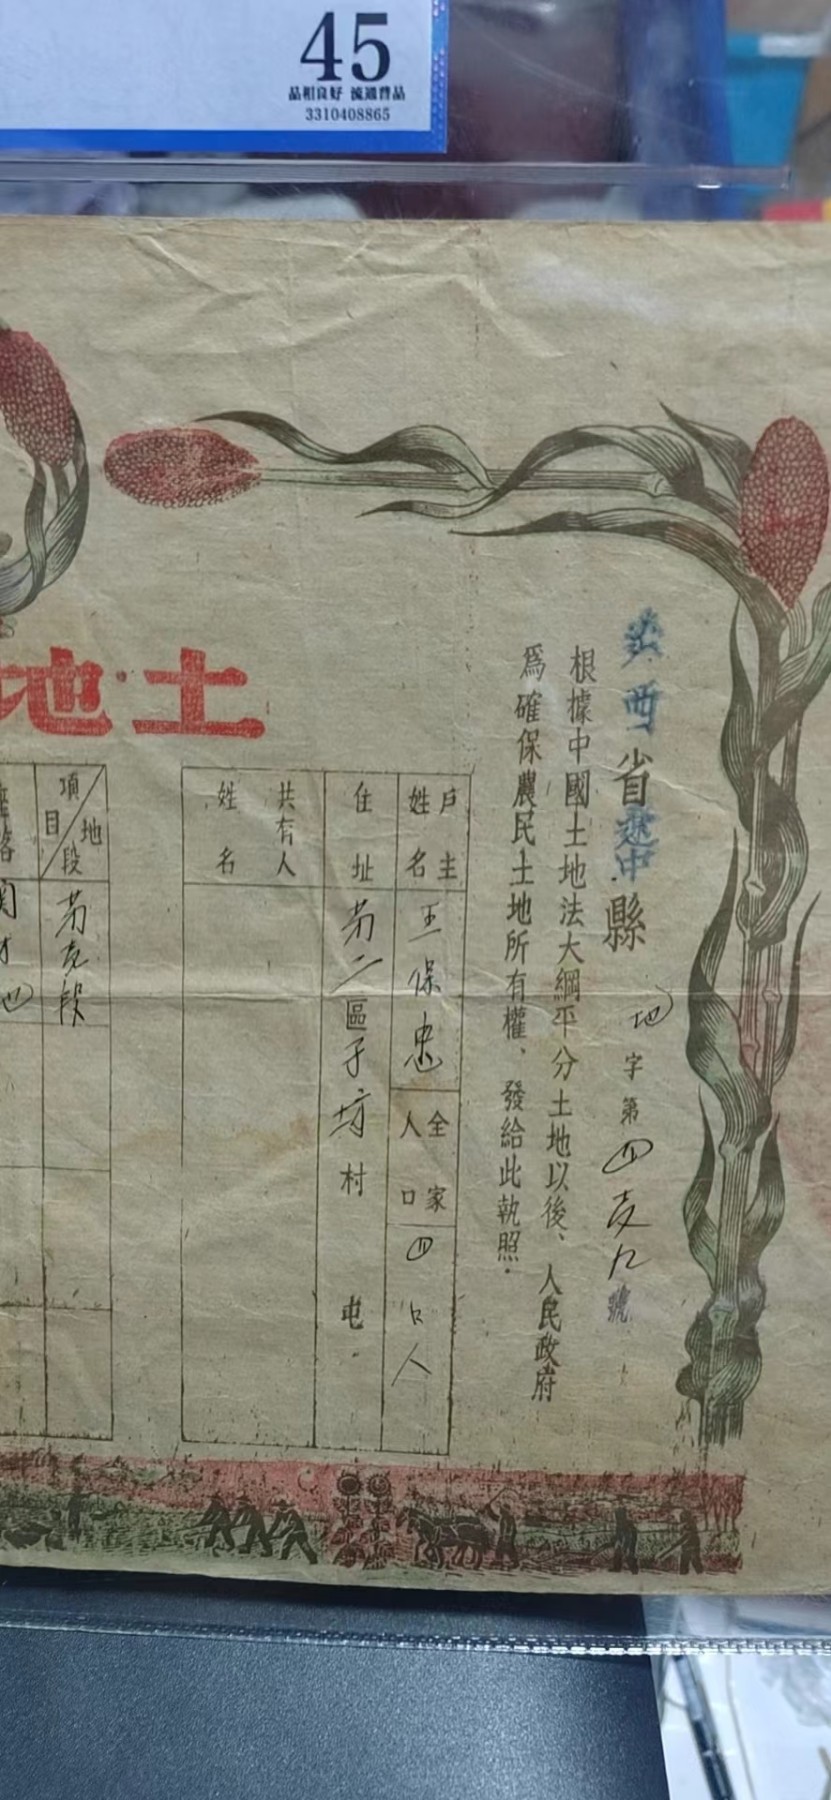 45
品相良好 流通普品
3310408865
土地
西省遼中縣
地字第四 九號
根據中國土地法大綱平分土地以後、人民政府
爲確保農民土地所有權、發給此執照.
戶主姓名
王保忠
全家人口
四口人
住址
第二區子坊村
屯.
共有人姓名
項目
地段
段